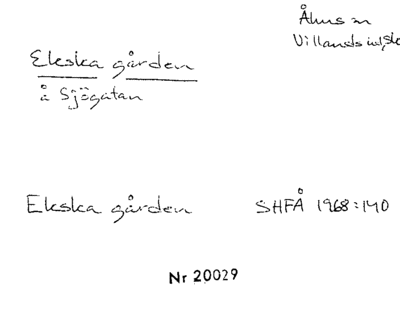 Åhus sn
Villands hd, Sk
Ekska gården
å Sjögatan
Ekska gården SHFÅ 1968:140
Nr 20029